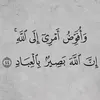 وَأُفَوِّضُ أَمْرِىٓ إِلَى ٱللَّهِ ۚ
إِنَّ ٱللَّهَ بَصِيرٌۢ بِٱلْعِبَادِ